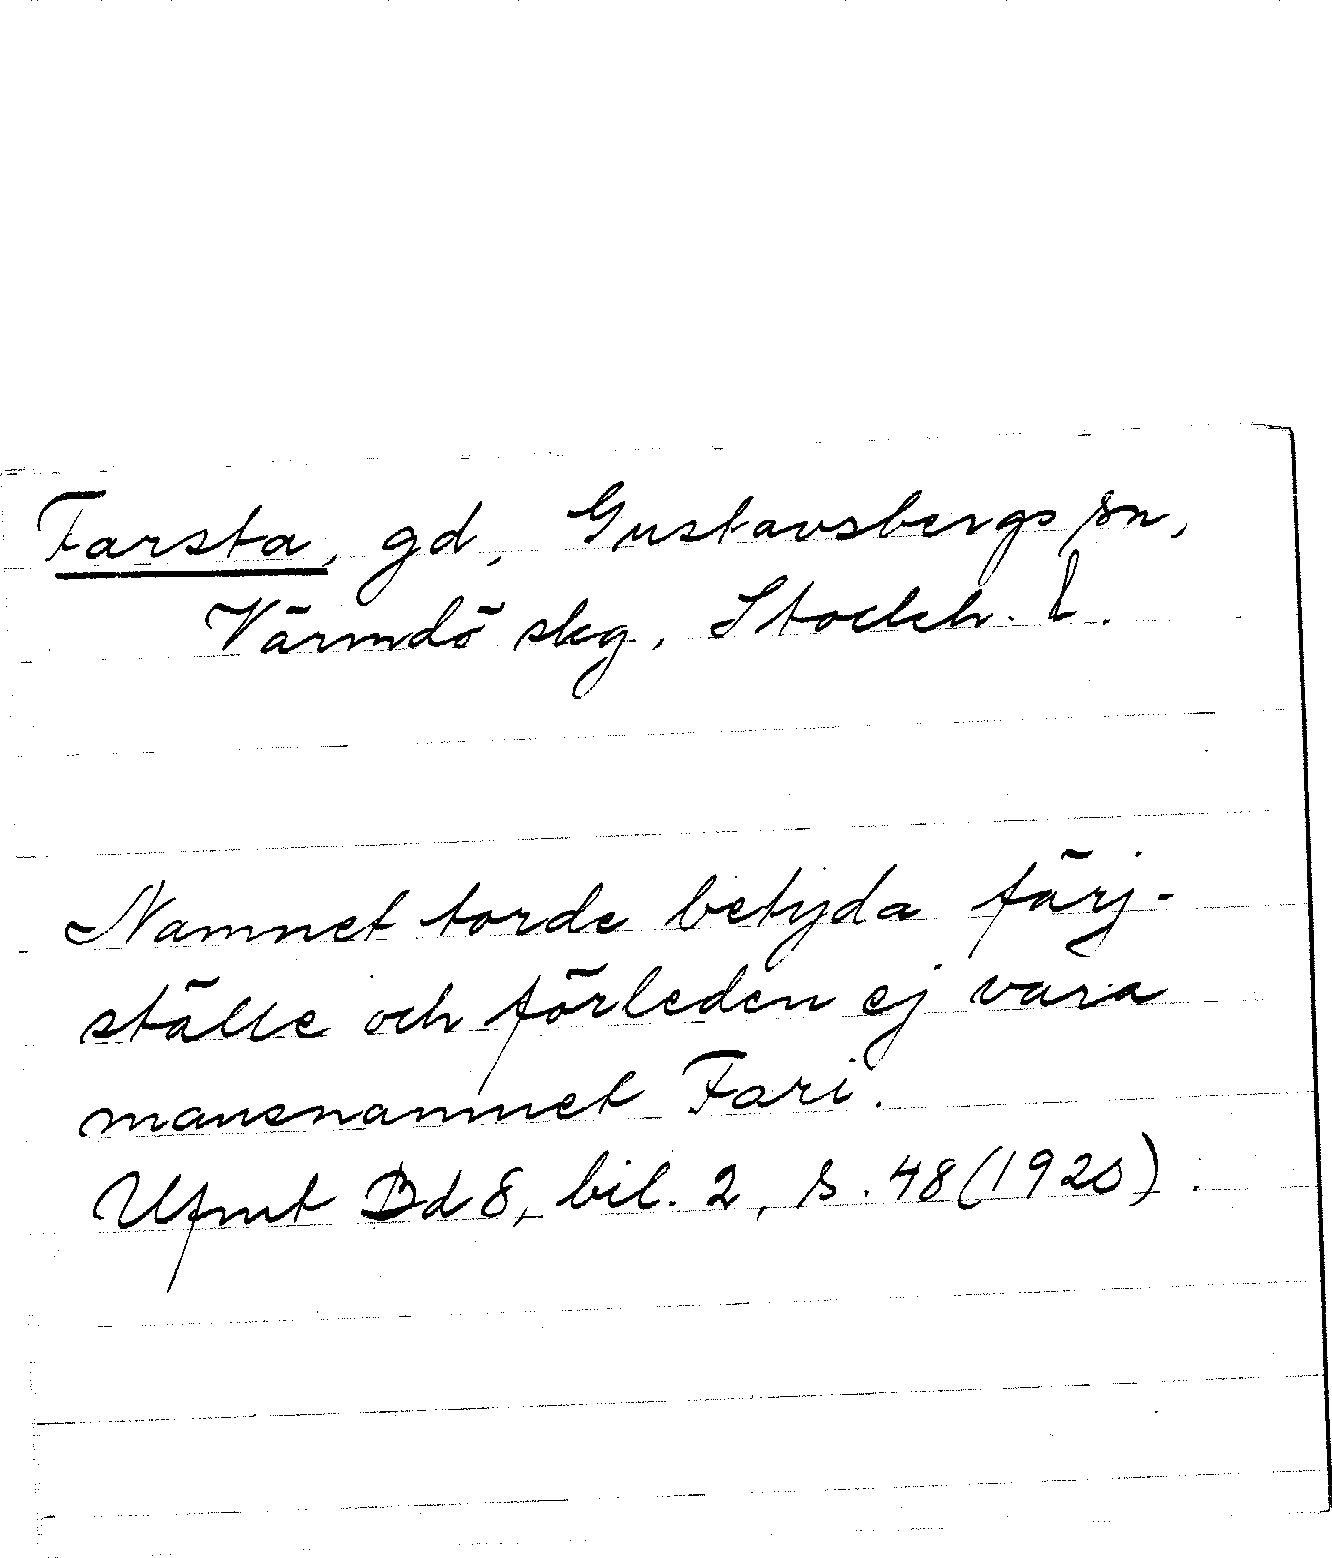 Farsta, gd, Gustavsbergs sn,
Värmdö skg, Stockh. l.
Namnet torde betyda färj-
ställe och förleden ej vara
mansnamnet Fari.
Ufmt Bd 8, bil. 2, s. 48 (1920).